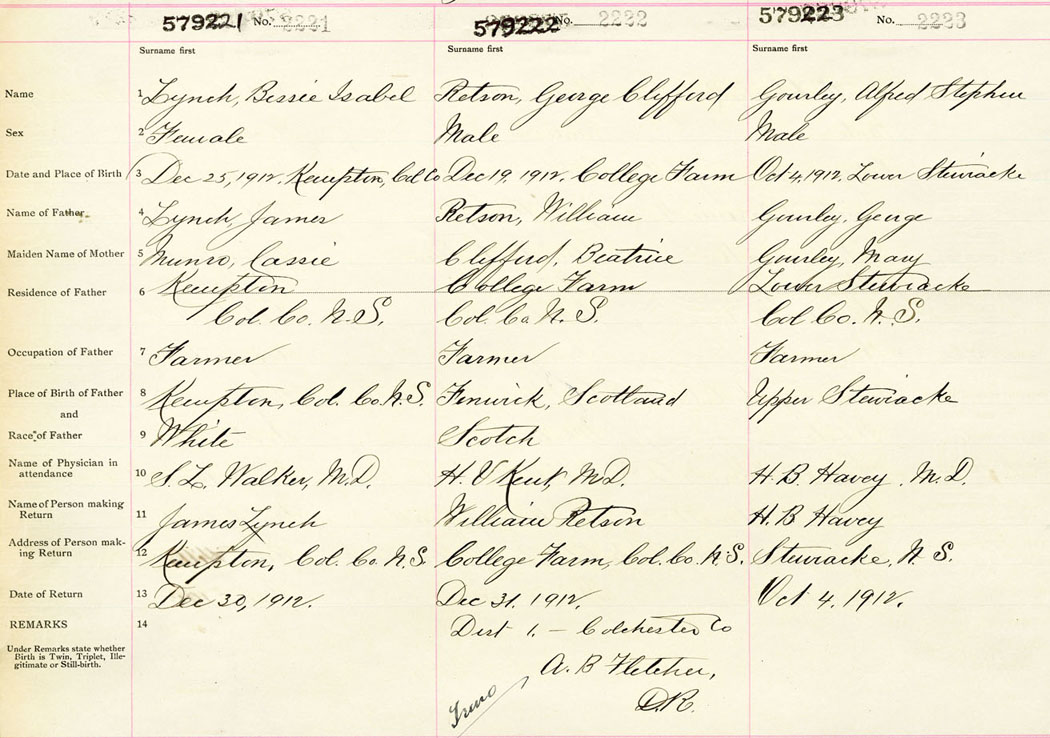 579221 No. 2221 579222 No. 2222 579223 No. 2223
Surname first Surname first Surname first
Name 1 Lynch, Bessie Isabel Retson, George Clifford Gourley, Alfred Stephen
Sex 2 Female Male Male
Date and Place of Birth 3 Dec 25, 1912. Kempton, Col Co Dec 19, 1912. College Farm Oct 4, 1912. Lower Stewiacke
Name of Father 4 Lynch, James Retson, William Gourley, George
Maiden Name of Mother 5 Munro, Cassie Clifford, Beatrice Gourley, Mary
Residence of Father 6 Kempton College Farm Lower Stewiacke
Col. Co. N.S. Col. Co N.S. Col Co. N.S.
Occupation of Father 7 Farmer Farmer Farmer
Place of Birth of Father 8 Kempton, Col. Co. N.S. Fenwick, Scotland Upper Stewiacke
and
Race of Father 9 White Scotch
Name of Physician in
attendance 10 S. L. Walker, M.D. H. V Kent, M.D. H. B Havey, M.D.
Name of Person making
Return 11 James Lynch William Retson H. B Havey
Address of Person mak-
ing Return 12 Kempton, Col. Co. N.S. College Farm, Col. Co. N.S. Stewiacke, N.S.
Date of Return 13 Dec 30, 1912. Dec 31, 1912. Oct 4. 1912.
REMARKS 14 Dist 1. – Colchester Co
Under Remarks state whether
Birth is Twin, Triplet, Ille-
gitimate or Still-birth.
A. B Fletcher,
Truro D.R.